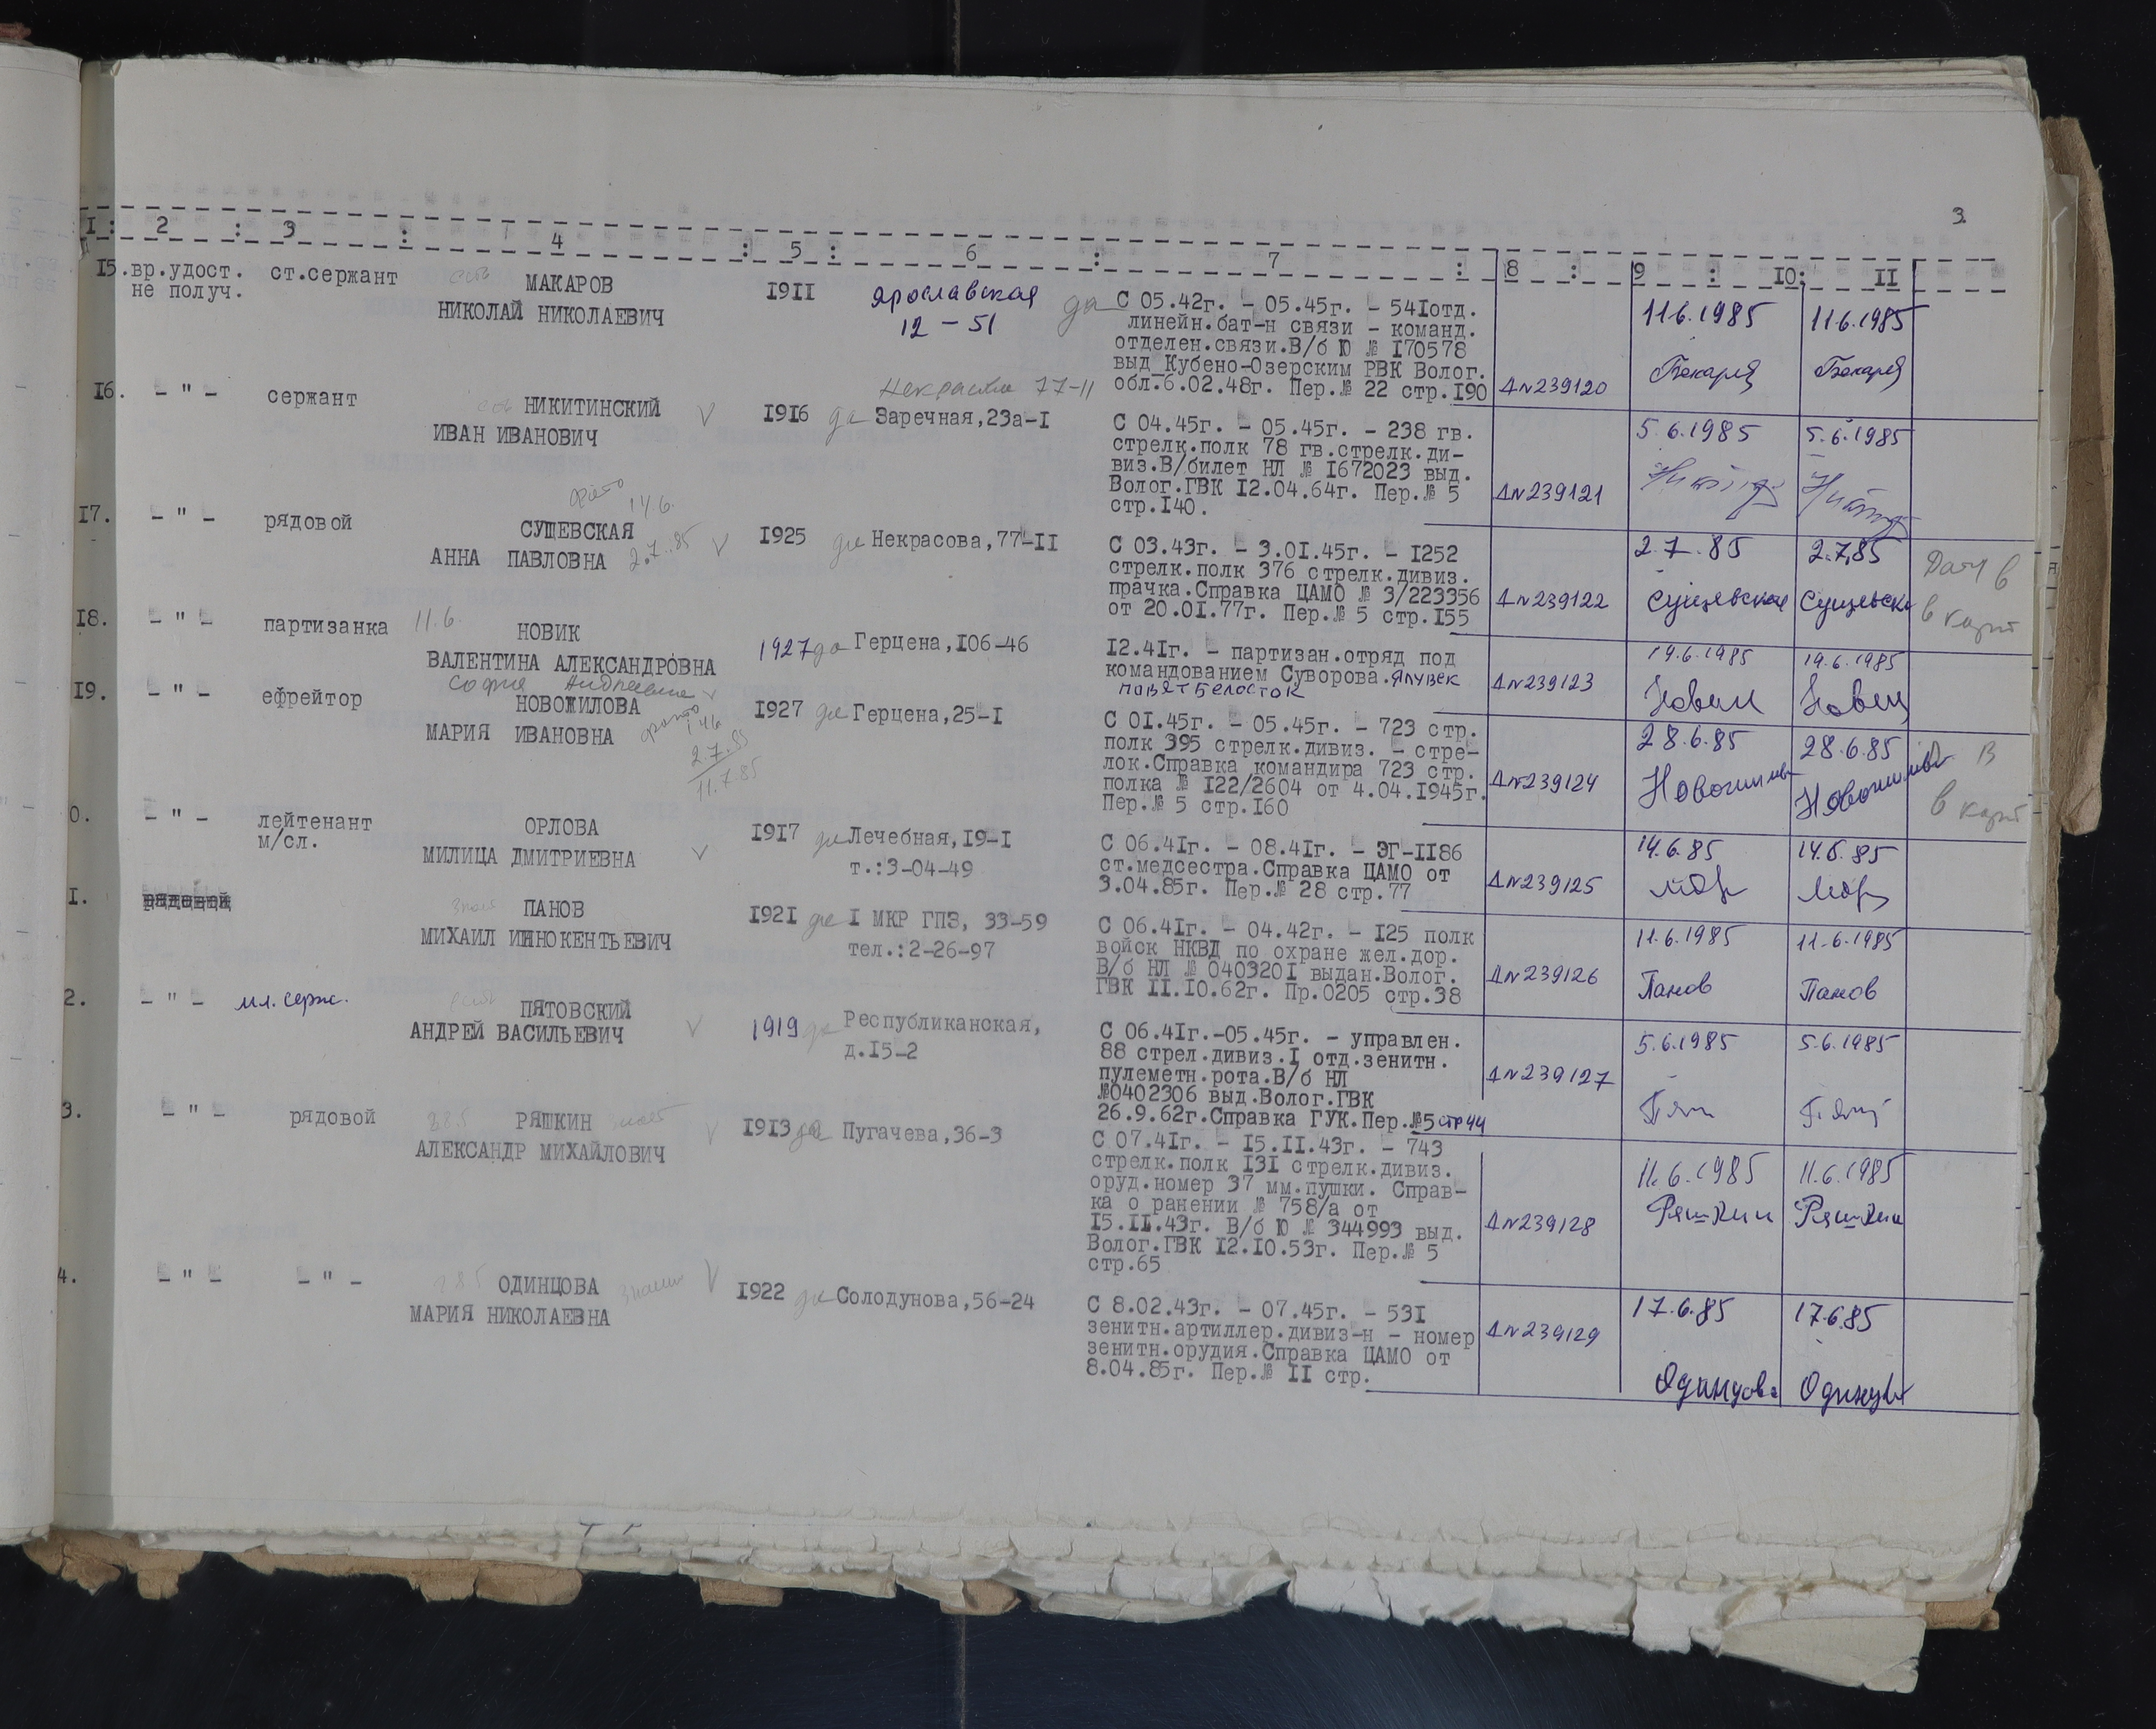 3.
I : 2 : 3 : 4 : 5 : 6 : 7 : 8 : 9 : 10: II
I5. вр.удост. не получ.
ст.сержант
МАКАРОВ
НИКОЛАЙ НИКОЛАЕВИЧ
I9II
Ярославская
12 - 51
да
С 05.42г. - 05.45г. - 54Iотд.
линейн.бат-н связи - команд.
отделен.связи.В/б Ю № I70578
выд Кубено-Озерским РВК Волог.
обл.6.02.48г. Пер.№ 22 стр.I90
ДN239120
11.6.1985
11.6.1985
I6. - " -
сержант
НИКИТИНСКИЙ
ИВАН ИВАНОВИЧ
V
I9I6
да
Некрасова 77-11
Заречная,23а-I
С 04.45г. - 05.45г. - 238 гв.
стрелк.полк 78 гв.стрелк.ди-
виз.В/билет НЛ № I672023 выд.
Волог.ГВК I2.04.64г. Пер.№ 5
стр.I40.
ДN239121
5.6.1985
5.6.1985
I7. - " -
рядовой
фото 14 6.
СУЩЕВСКАЯ
АННА ПАВЛОВНА
2.7.85
V
I925
да
Некрасова,77-II
С 03.43г. - 3.0I.45г. - I252
стрелк.полк 376 стрелк.дивиз.
прачка.Справка ЦАМО № 3/223356
от 20.0I.77г. Пер.№ 5 стр.I55
ДN239122
2.7.85
2.7.85
Сущевская
в карт
I8. - " -
партизанка
11.6.
НОВИК
ВАЛЕНТИНА АЛЕКСАНДРОВНА
1927
да
Герцена,I06-46
I2.4Iг. - партизан.отряд под
командованием Суворова.
ДN239123
19.6.1985
19.6.1985
Новик
Новик
I9. - " -
ефрейтор
София Андреевна
НОВОЖИЛОВА
МАРИЯ ИВАНОВНА
фото 14 6
2.7.85
11.7.85
I927
да
Герцена,25-I
С 0I.45г. - 05.45г. - 723 стр.
полк 395 стрелк.дивиз. - стре-
лок.Справка командира 723 стр.
полка № I22/2604 от 4.04.I945г.
Пер.№ 5 стр.I60
ДN239124
28.6.85
28.6.85
в карт
0. - " -
лейтенант
м/сл.
ОРЛОВА
МИЛИЦА ДМИТРИЕВНА
V
I9I7
да
Лечебная,I9-I
т.:3-04-49
С 06.4Iг. - 08.4Iг. - ЭГ-II86
ст.медсестра.Справка ЦАМО от
3.04.85г. Пер.№ 28 стр.77
ДN239125
14.6.85
14.6.85
I. рядовой
ПАНОВ
МИХАИЛ ИННОКЕНТЬЕВИЧ
I92I
да
I МКР ГПЗ, 33-59
тел.:2-26-97
С 06.4Iг. - 04.42г. - I25 полк
войск НКВД по охране жел.дор.
В/б НЛ № 040320I выдан.Волог.
ГВК II.I0.62г. Пр.0205 стр.38
ДN239126
11.6.1985
11.6.1985
Панов
Панов
2. - " -
мл. серж.
ПЯТОВСКИЙ
АНДРЕЙ ВАСИЛЬЕВИЧ
V
1919
да
Республиканская,
д.I5-2
С 06.4Iг.-05.45г. - управлен.
88 стрел.дивиз.I отд.зенитн.
пулеметн.рота.В/б НЛ
№0402306 выд.Волог.ГВК
26.9.62г.Справка ГУК.Пер.№5 стр 44
ДN239127
5.6.1985
5.6.1985
3. - " -
рядовой
РЯШКИН
АЛЕКСАНДР МИХАЙЛОВИЧ
V
I9I3
да
Пугачева,36-3
С 07.4Iг. - I5.II.43г. - 743
стрелк.полк I3I стрелк.дивиз.
оруд.номер 37 мм.пушки. Справ-
ка о ранении № 758/а от
I5.II.43г. В/б Ю № 344993 выд.
Волог.ГВК I2.I0.53г. Пер.№ 5
стр.65
ДN239128
11.6.1985
11.6.1985
Ряшкин
Ряшкин
4. - " -
- " -
ОДИНЦОВА
МАРИЯ НИКОЛАЕВНА
V
I922
да
Солодунова,56-24
С 8.02.43г. - 07.45г. - 53I
зенитн.артиллер.дивиз-н - номер
зенитн.орудия.Справка ЦАМО от
8.04.85г. Пер.№ II стр.
ДN239129
17.6.85
17.6.85
Одинцова
Одинцова